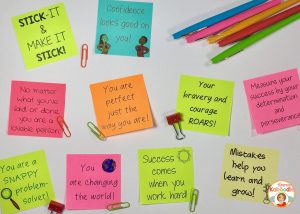 STICK-IT
& MAKE IT
STICK!
Confidence
looks good on
you!
No matter
what you've
said or done
you are a
lovable person
You are
perfect
just the
way you are!
Your
bravery and
courage
ROARS!
Measure your
success by your
determination
and
perseverance.
You are a
SNAPPY
problem-
solver!
You
are changing
the world!
Success
comes
when you
work hard
Mistakes
help you
learn and
grow!